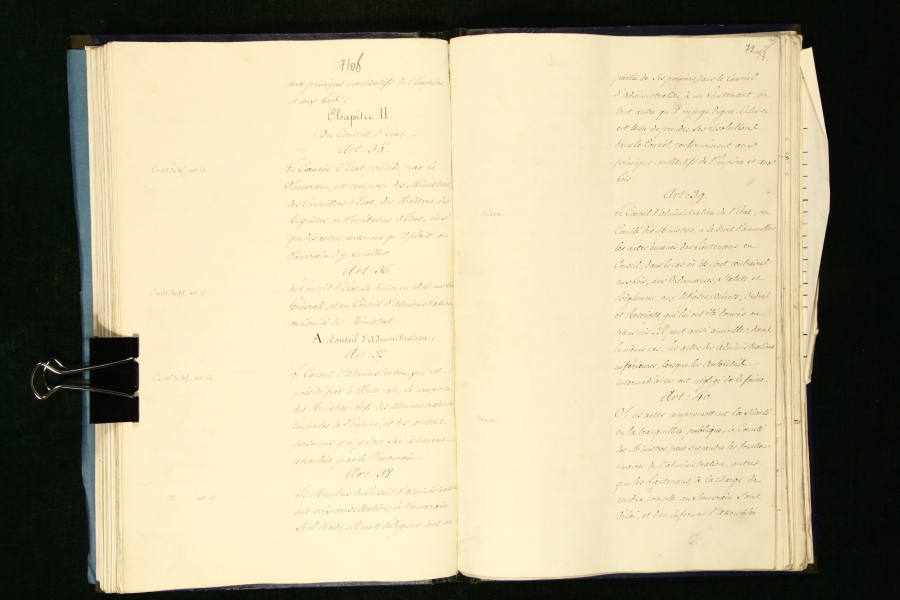 7108
aux principes constitutifs de l'Empire
et aux lois.
Chapitre II.
Du Conseil d'Etat.
Art: 35.
Le Conseil d'Etat présidé par le
Souverain, est composé des Ministres,
des Conseillers d'Etat, des Maîtres des
Requêtes ou Secrétaires d'Etat, ainsi
que des autres personnes qu'il plait au
Souverain d'y appeller.
Art: 36.
Le Conseil d'Etat se divise en Assemblée
Générale, et en Conseil d'Administration
ou Comité des Ministres.
A. Conseil d'administration.
Art: 37
Le Conseil d'Administration, qui est
présidé par le Souverain, se compose
des Ministres, chefs des Administrations
Générales de l'Empire, et des autres
personnes qui y sont spécialement
appelées par le Souverain.
Art: 38
Les Membres du Conseil d'Administration
ont voix consultative, le Souverain
seul décide. Il peut déléguer tout ou
partie de ses pouvoirs, dans le Conseil
d'Administration, à un Lieutenant, ou
tout autre qu'il en juge digne. Celui-ci
est tenu de prendre ses résolutions
dans le Conseil, conformément aux
principes constitutifs de l'Empire et aux
lois
Art: 39.
Le Conseil d'administration de l'Etat, ou
Comité des Ministres, a le droit d'annuller
les actes émanés des Lieutenans en
Conseil, dans le cas où ils sont contraires
aux lois, aux Ordonnances, Statuts et
Règlemens, aux Ukases, Décrets, Ordres
et Rescripts, qui lui ont été donnés ou
transmis. Il peut aussi annuller, dans
le même cas, les actes des administrations
inférieures, lorsque les Autorités
intermédiaires ont négligé de le faire.
Art: 40.
Si ces actes compromettent la sûreté
ou la tranquillité publique, le Comité
des Ministres peut suspendre les fonction-
naires de l'administration, autres
que les Lieutenans, à la charge de
rendre compte au Souverain sans
délai, et d'en informer l'Assemblée